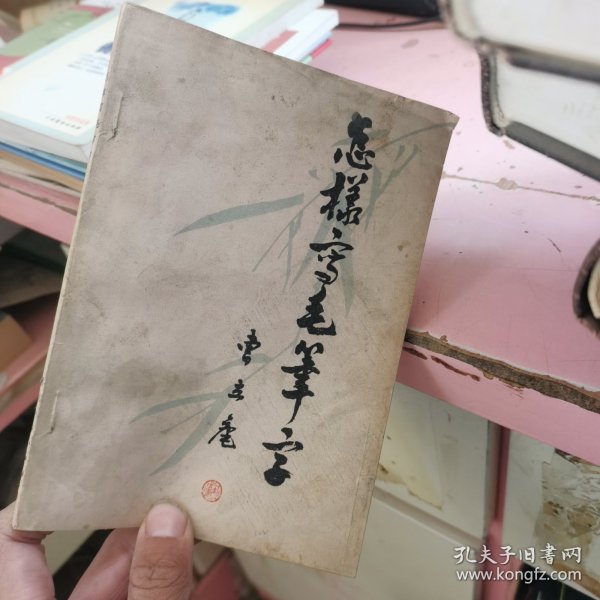 怎樣寫毛筆字
孔夫子旧书网
www.kongfz.com